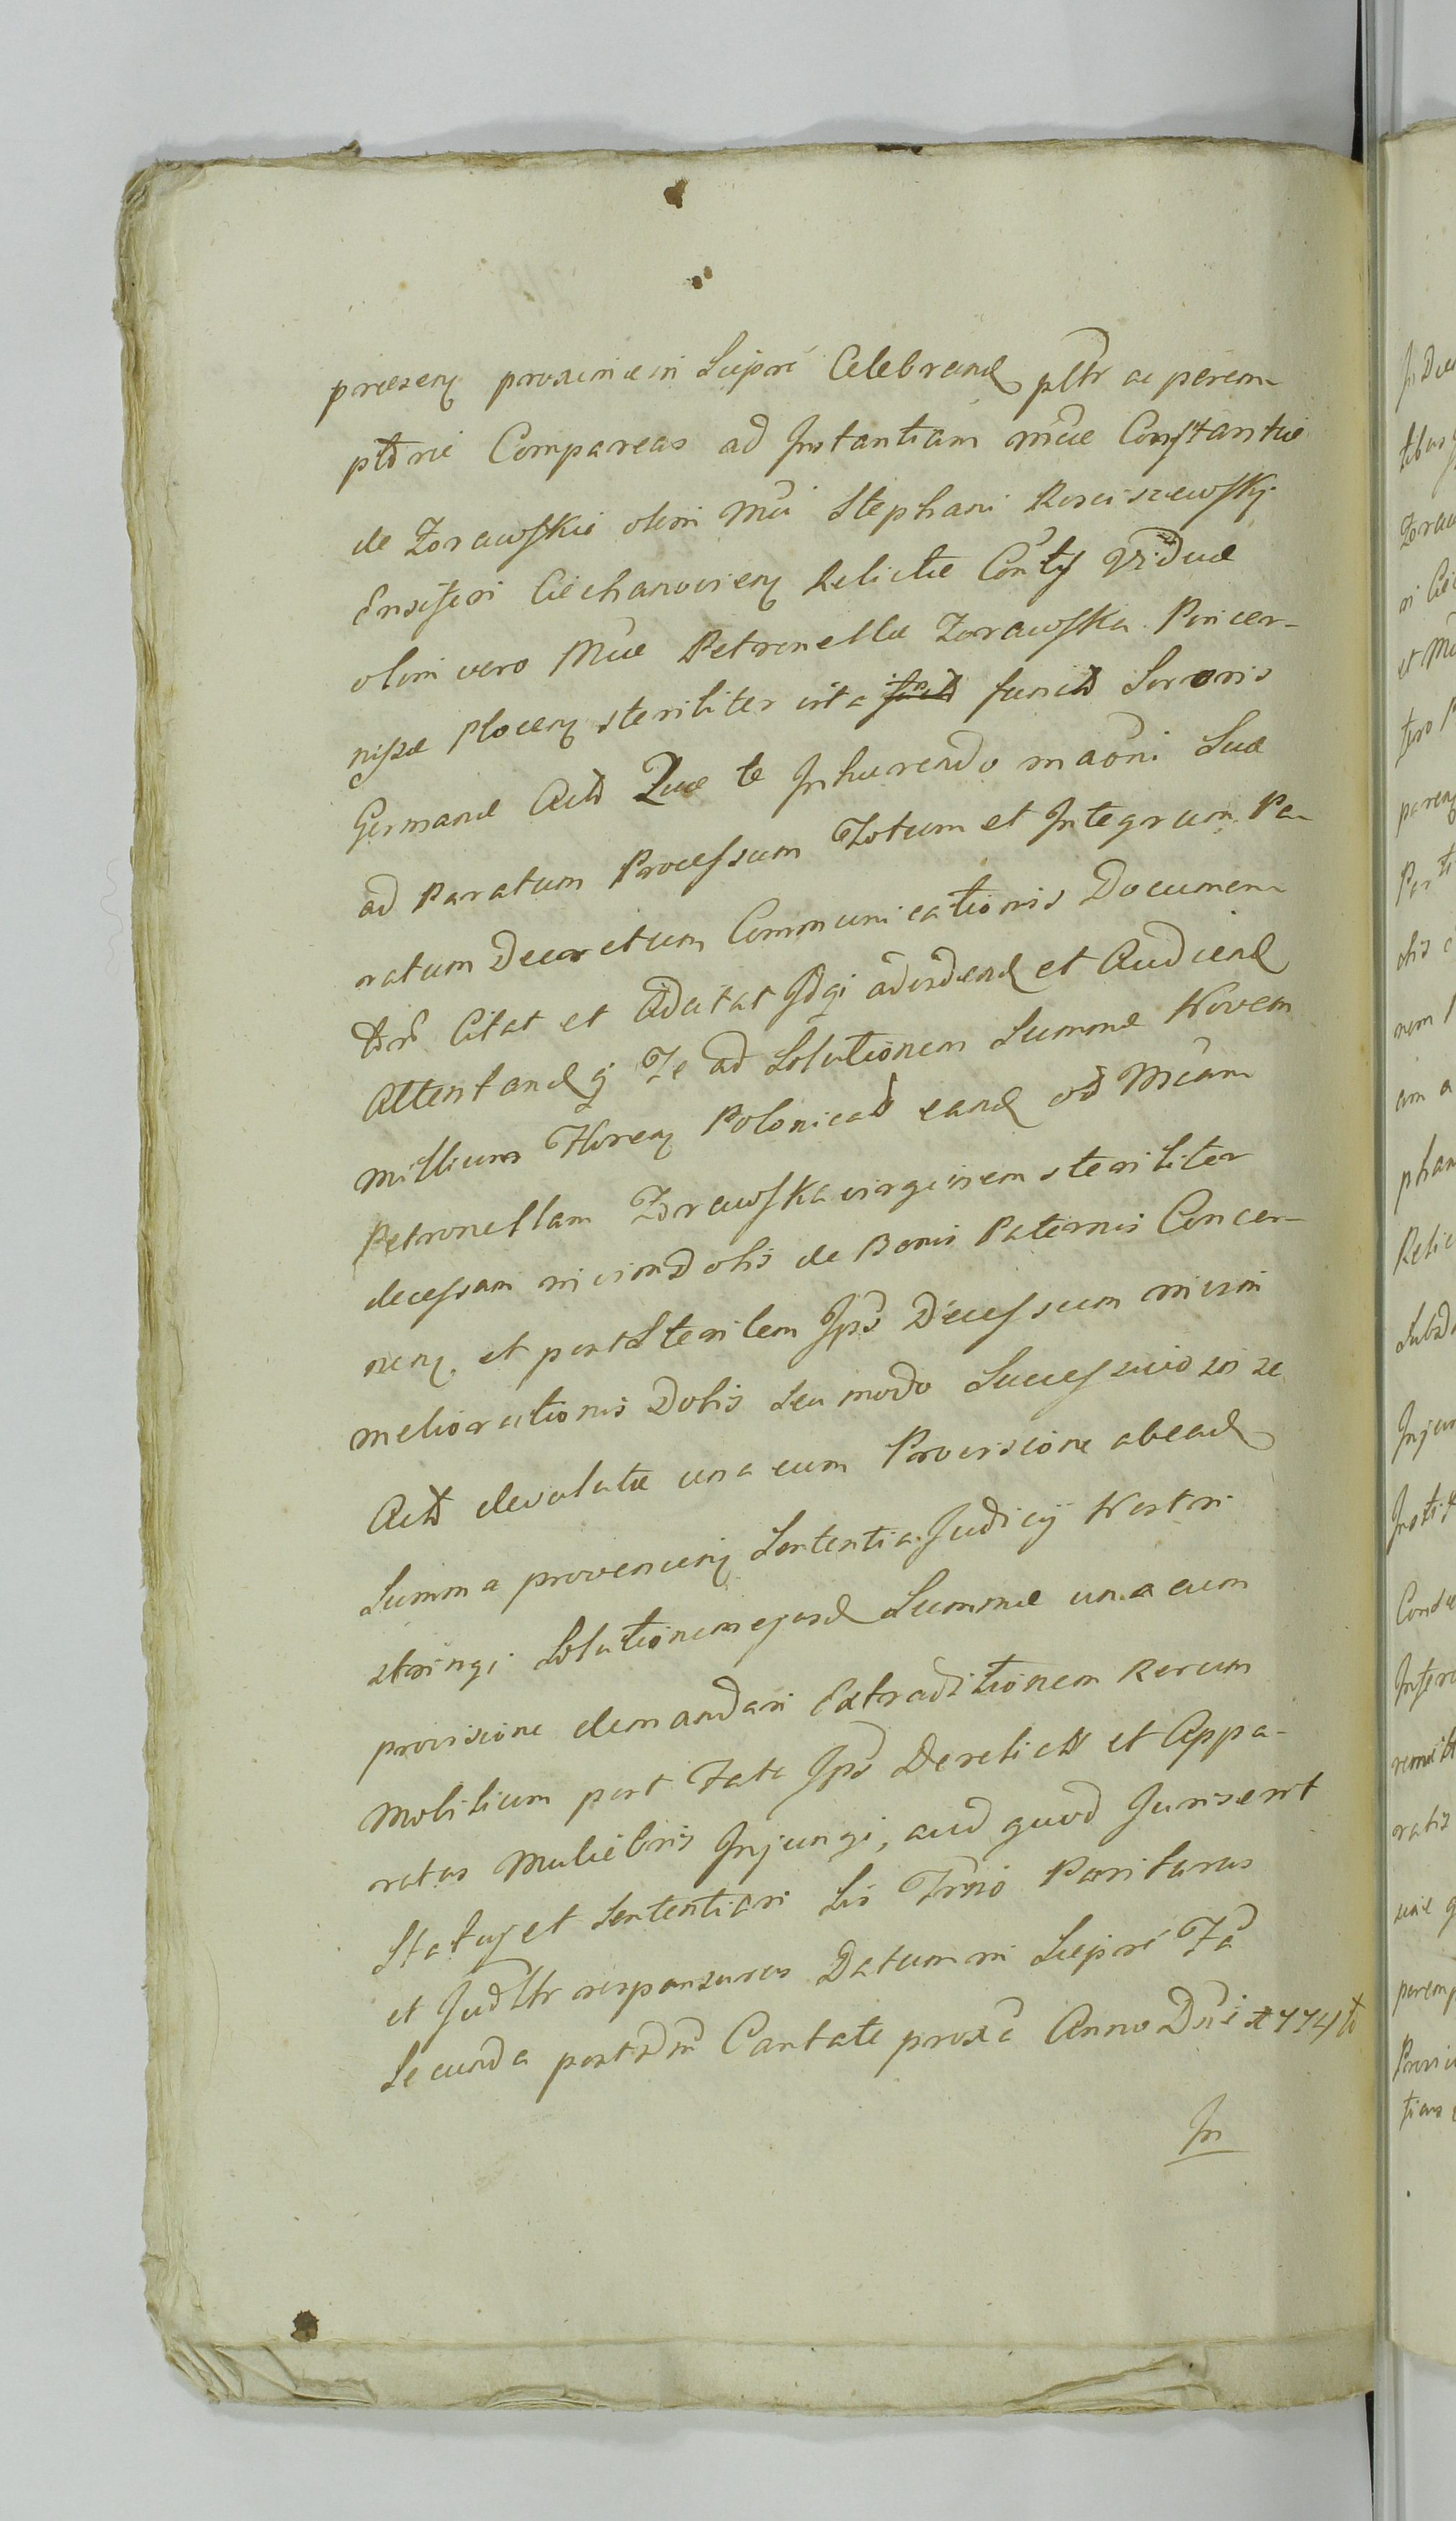 præsen proxime in Sieprc Celebrand pltr ac perem-
ptorie Compareas ad Instantiam Mcæ Constantiæ
de Zorawskie olim Mci Stephani Rosciszewsky
Ensiferi Ciechanovien Relictæ Contis Viduæ
olim vero Mcæ Petronellæ Zorawska Pincer-
nissæ Plocen steriliter vita functæ Sororis
Germanæ Act Quæ te Inhærendo maoni Suæ
ad Paratum Processum Totum et Integrum Pa-
ratum Decretum Communicationis Documen-
tor Citat et Adcitat Idqi advidend et Audiend
Attentand q Te ad Solutionem Summæ Novem
Millium Floren Polonical eand od Mcam
Petronellam Zorawska virginem steriliter
decessam in vim dotis de Bonis Paternis Concer-
nen et post Sterilem Ips Decessum in vim
meliorationis Dotis seu modo Successivo in se
Act devolutæ una cum Provisione abead
Summa provenien Sententia Judicij Nostri
stringi Solutionem ejusd Summæ una cum
provisione demandari Extraditionem Rerum
Mobilium post Fata Ips Derelict et Appa-
ratus Muliebris Injungi, aud quod Juris erit
Statuj et Sententiari Sis Trmo Pariturus
et Judltr responsurus Datum in Sieprc Fa
Secunda post Dm Cantate proxa Anno Dni 1774to
In